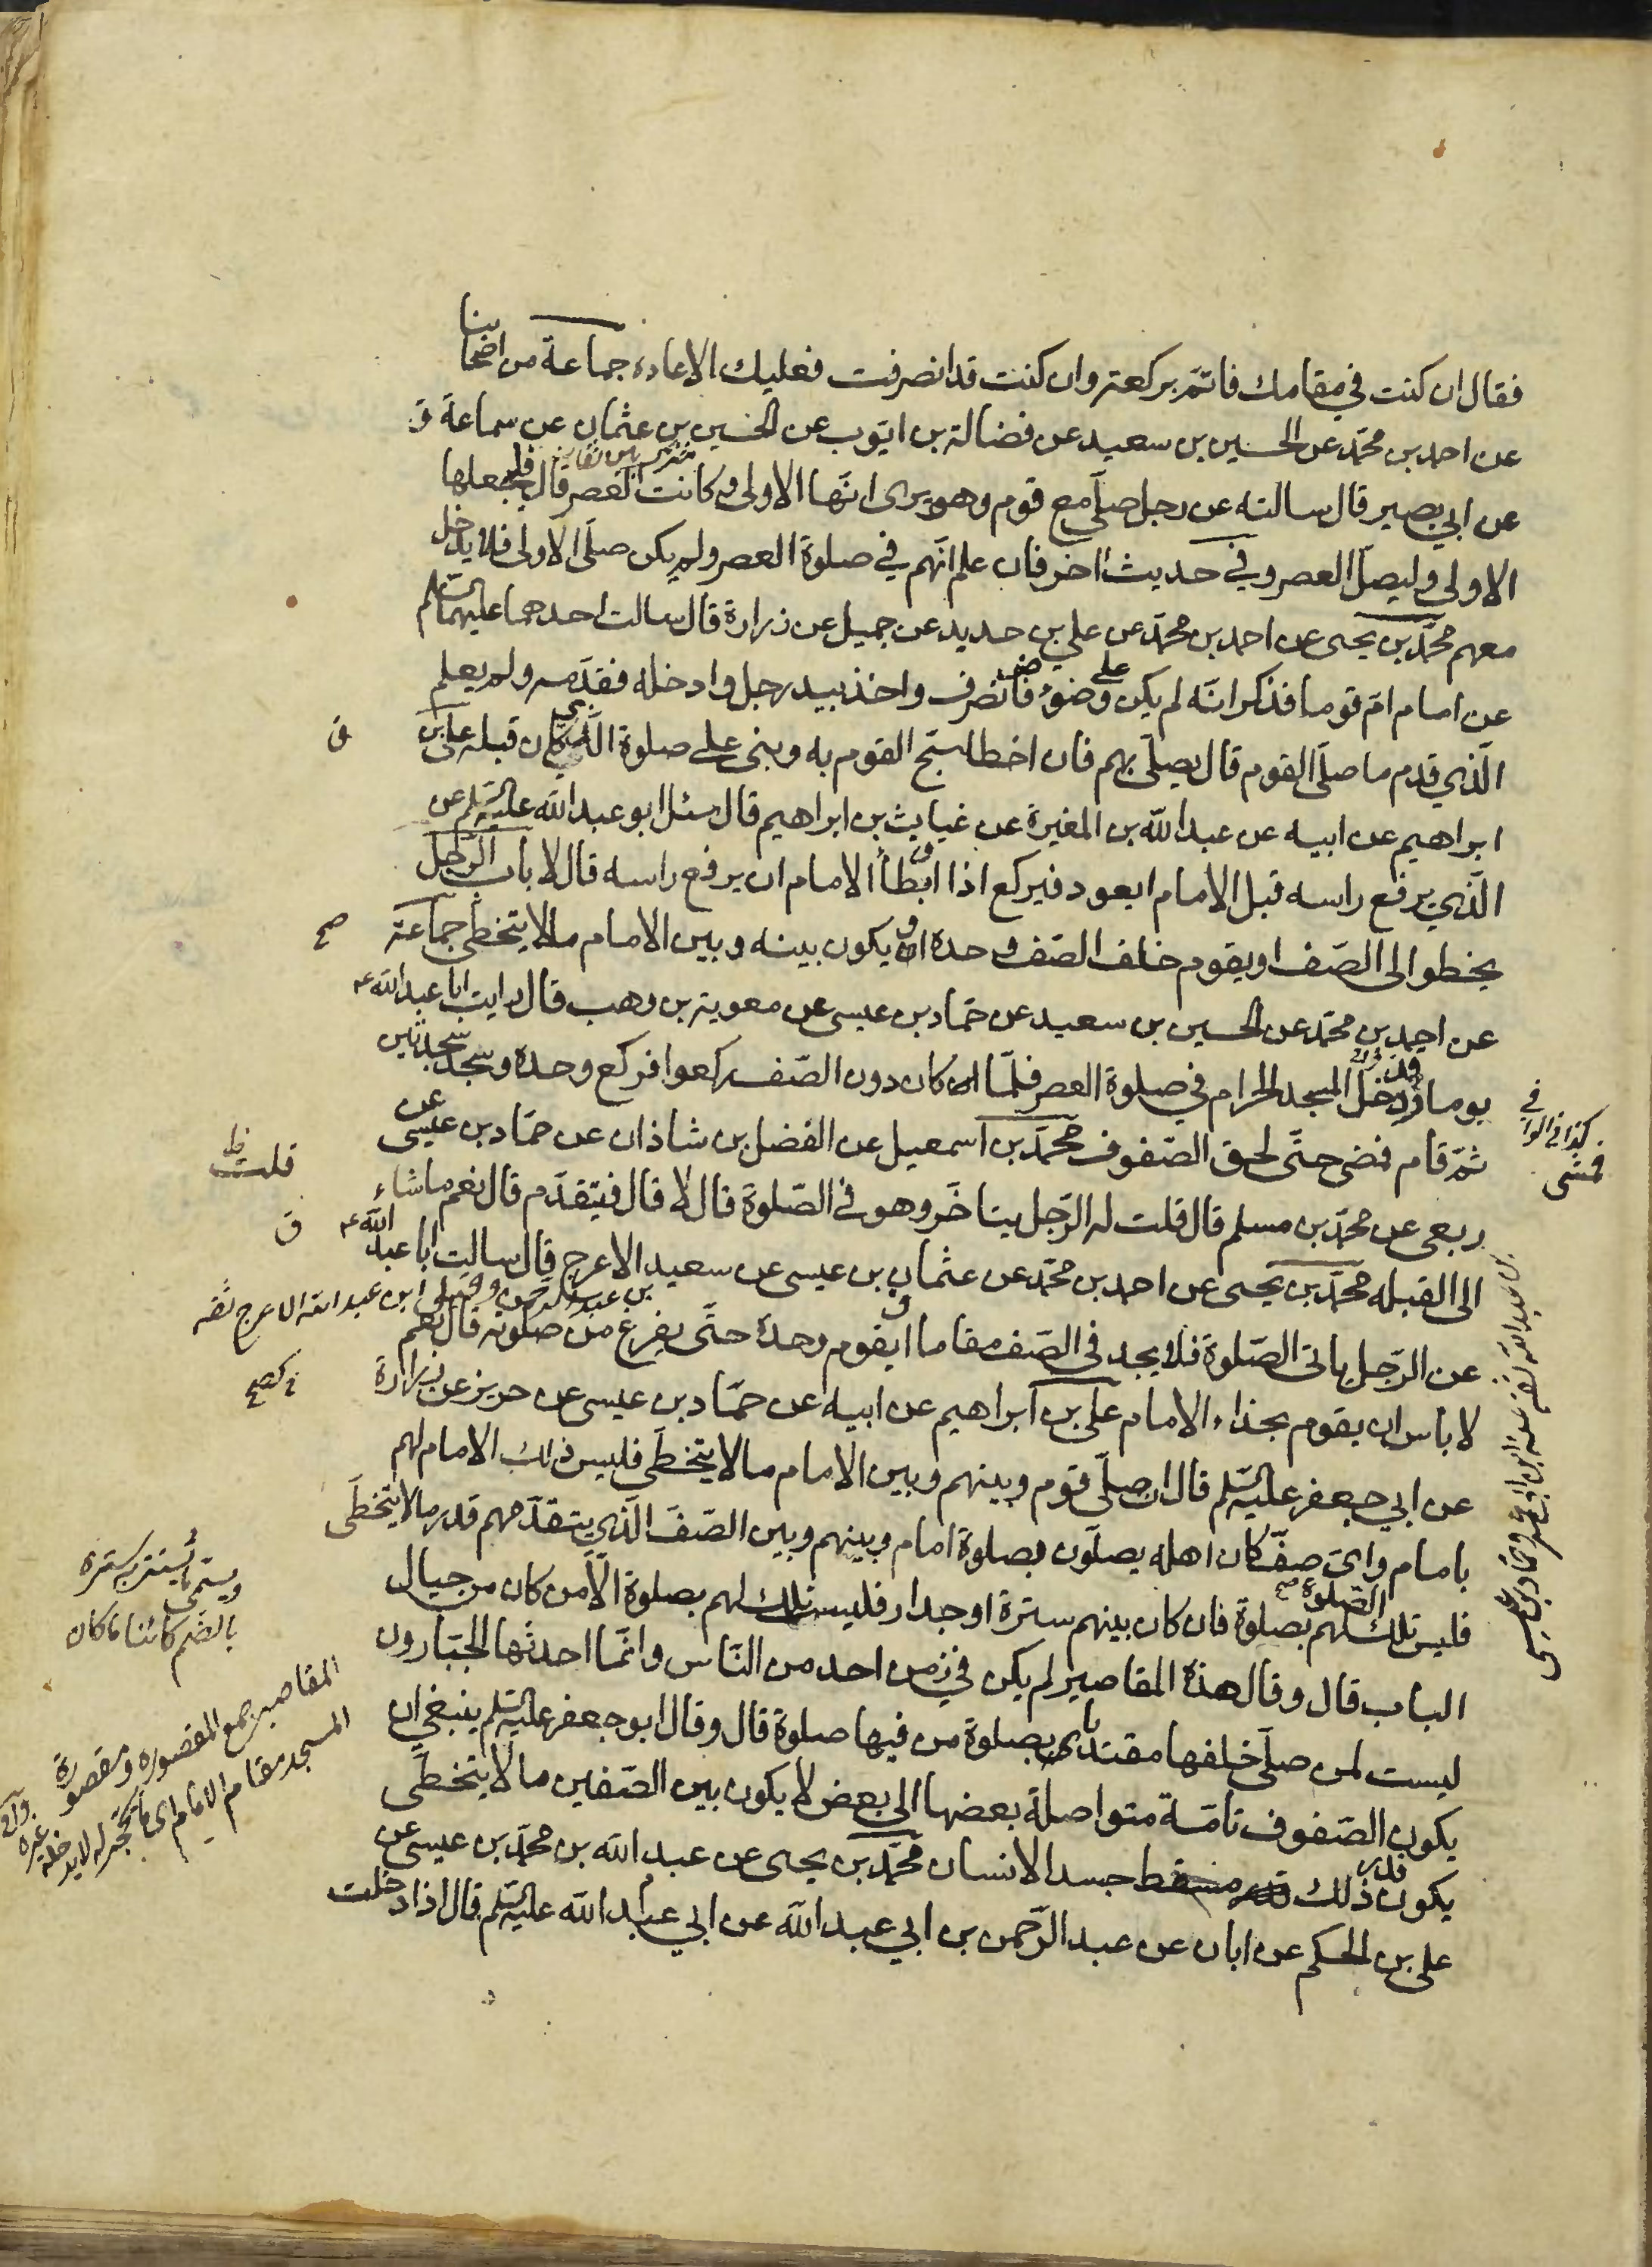 فقال ان كنت في مقامك فاتمّ بركعة وان كنت قد انصرفت فعليك الاعادة جماعة من اصحابنا
عن احمد بن محمّد عن الحسين بن سعيد عن فضالة بن ايّوب عن الحسين بن عثمان عن سماعة
عن ابي بصير قال سالته عن رجل صلّى مع قوم وهو يرى انّها الاولى وكانت العصر قال فليجعلها
الاولى وليصلّ العصر وفي حديث اخر فان علم انّهم في صلوة العصر ولم يكن صلّى الاولى فلا يدخل
معهم محمّد بن يحيى عن احمد بن محمّد عن علي بن حديد عن جميل عن زرارة قال سالت احدهما عليهما السّلم
عن امام امّ قوما فذكر انّه لم يكن على وضوء فانصرف واخذ بيد رجل وادخله فقدّمه ولم يعلم
الّذي قدم ما صلّى القوم قال يصلّي بهم فان اخطا سبّح القوم به وبنى على صلوة الّذي كان قبله علي بن
ابراهيم عن ابيه عن عبد الله بن المغيرة عن غياث بن ابراهيم قال سئل ابو عبد الله عليه السّلم عن
الّذي يرفع راسه قبل الامام ايعود فيركع اذا ابطأ الامام ان يرفع راسه قال لا باب الرّجل
يخطو الى الصّف او يقوم خلف الصّف وحده او يكون بينه وبين الامام ما لا يتخطّى جماعة
عن احمد بن محمّد عن الحسين بن سعيد عن حمّاد بن عيسى عن معوية بن وهب قال رايت ابا عبد الله ع
يوما وقد دخل المسجد الحرام في صلوة العصر فلمّا كان دون الصّف ركعوا فركع وحده وسجد سجدتين
ثمّ قام فمضى حتّى لحق الصّفوف محمّد بن اسمعيل عن الفضل بن شاذان عن حمّاد بن عيسى عن
ربعي عن محمّد بن مسلم قال قلت له الرّجل يتاخّر وهو في الصّلوة قال لا قال فيتقدّم قال نعم ما شاء
الى القبله محمّد بن يحيى عن احمد بن محمّد عن عثمان بن عيسى عن سعيد الاعرج قال سالت ابا عبد الله ع
عن الرّجل ياتي الصّلوة فلا يجد في الصّف مقاما ايقوم وحده حتّى يفرغ من صلوته قال نعم
لا باس ان يقوم بحذاء الامام علي بن ابراهيم عن ابيه عن حمّاد بن عيسى عن حريز عن زرارة
عن ابي جعفر عليه السّلم قال ان صلّى قوم وبينهم وبين الامام ما لا يتخطّى فليس ذلك الامام لهم
بامام وايّ صفّ كان اهله يصلّون بصلوة امام وبينهم وبين الصّفّ الّذي يتقدّمهم قدر ما لا يتخطّى
فليس تلك الصّلوة لهم بصلوة فان كان بينهم سترة او جدار فليست تلك لهم بصلوة الّا من كان من حيال
الباب قال وقال هذه المقاصير لم يكن في زمن احد من النّاس وانّما احدثها الجبّارون
ليست لمن صلّى خلفها مقتديا بصلوة من فيها صلوة قال وقال ابو جعفر عليه السّلم ينبغي ان
يكون الصّفوف تامّة متواصلة بعضها الى بعض لا يكون بين الصّفين ما لا يتخطّى
يكون قدر ذلك مسقط جسد الانسان محمّد بن يحيى عن عبد الله بن محمّد بن عيسى عن
علي بن الحكم عن ابان عن عبد الرّحمن بن ابي عبد الله عن ابي عبد الله عليه السّلم قال اذا دخلت
ق
صح
كذا في الوافي
فمشى
قلت ظ
ق
بالضم كائنا ما كان
المقاصير جمع المقصورة ومقصورة
المسجد مقام الامام